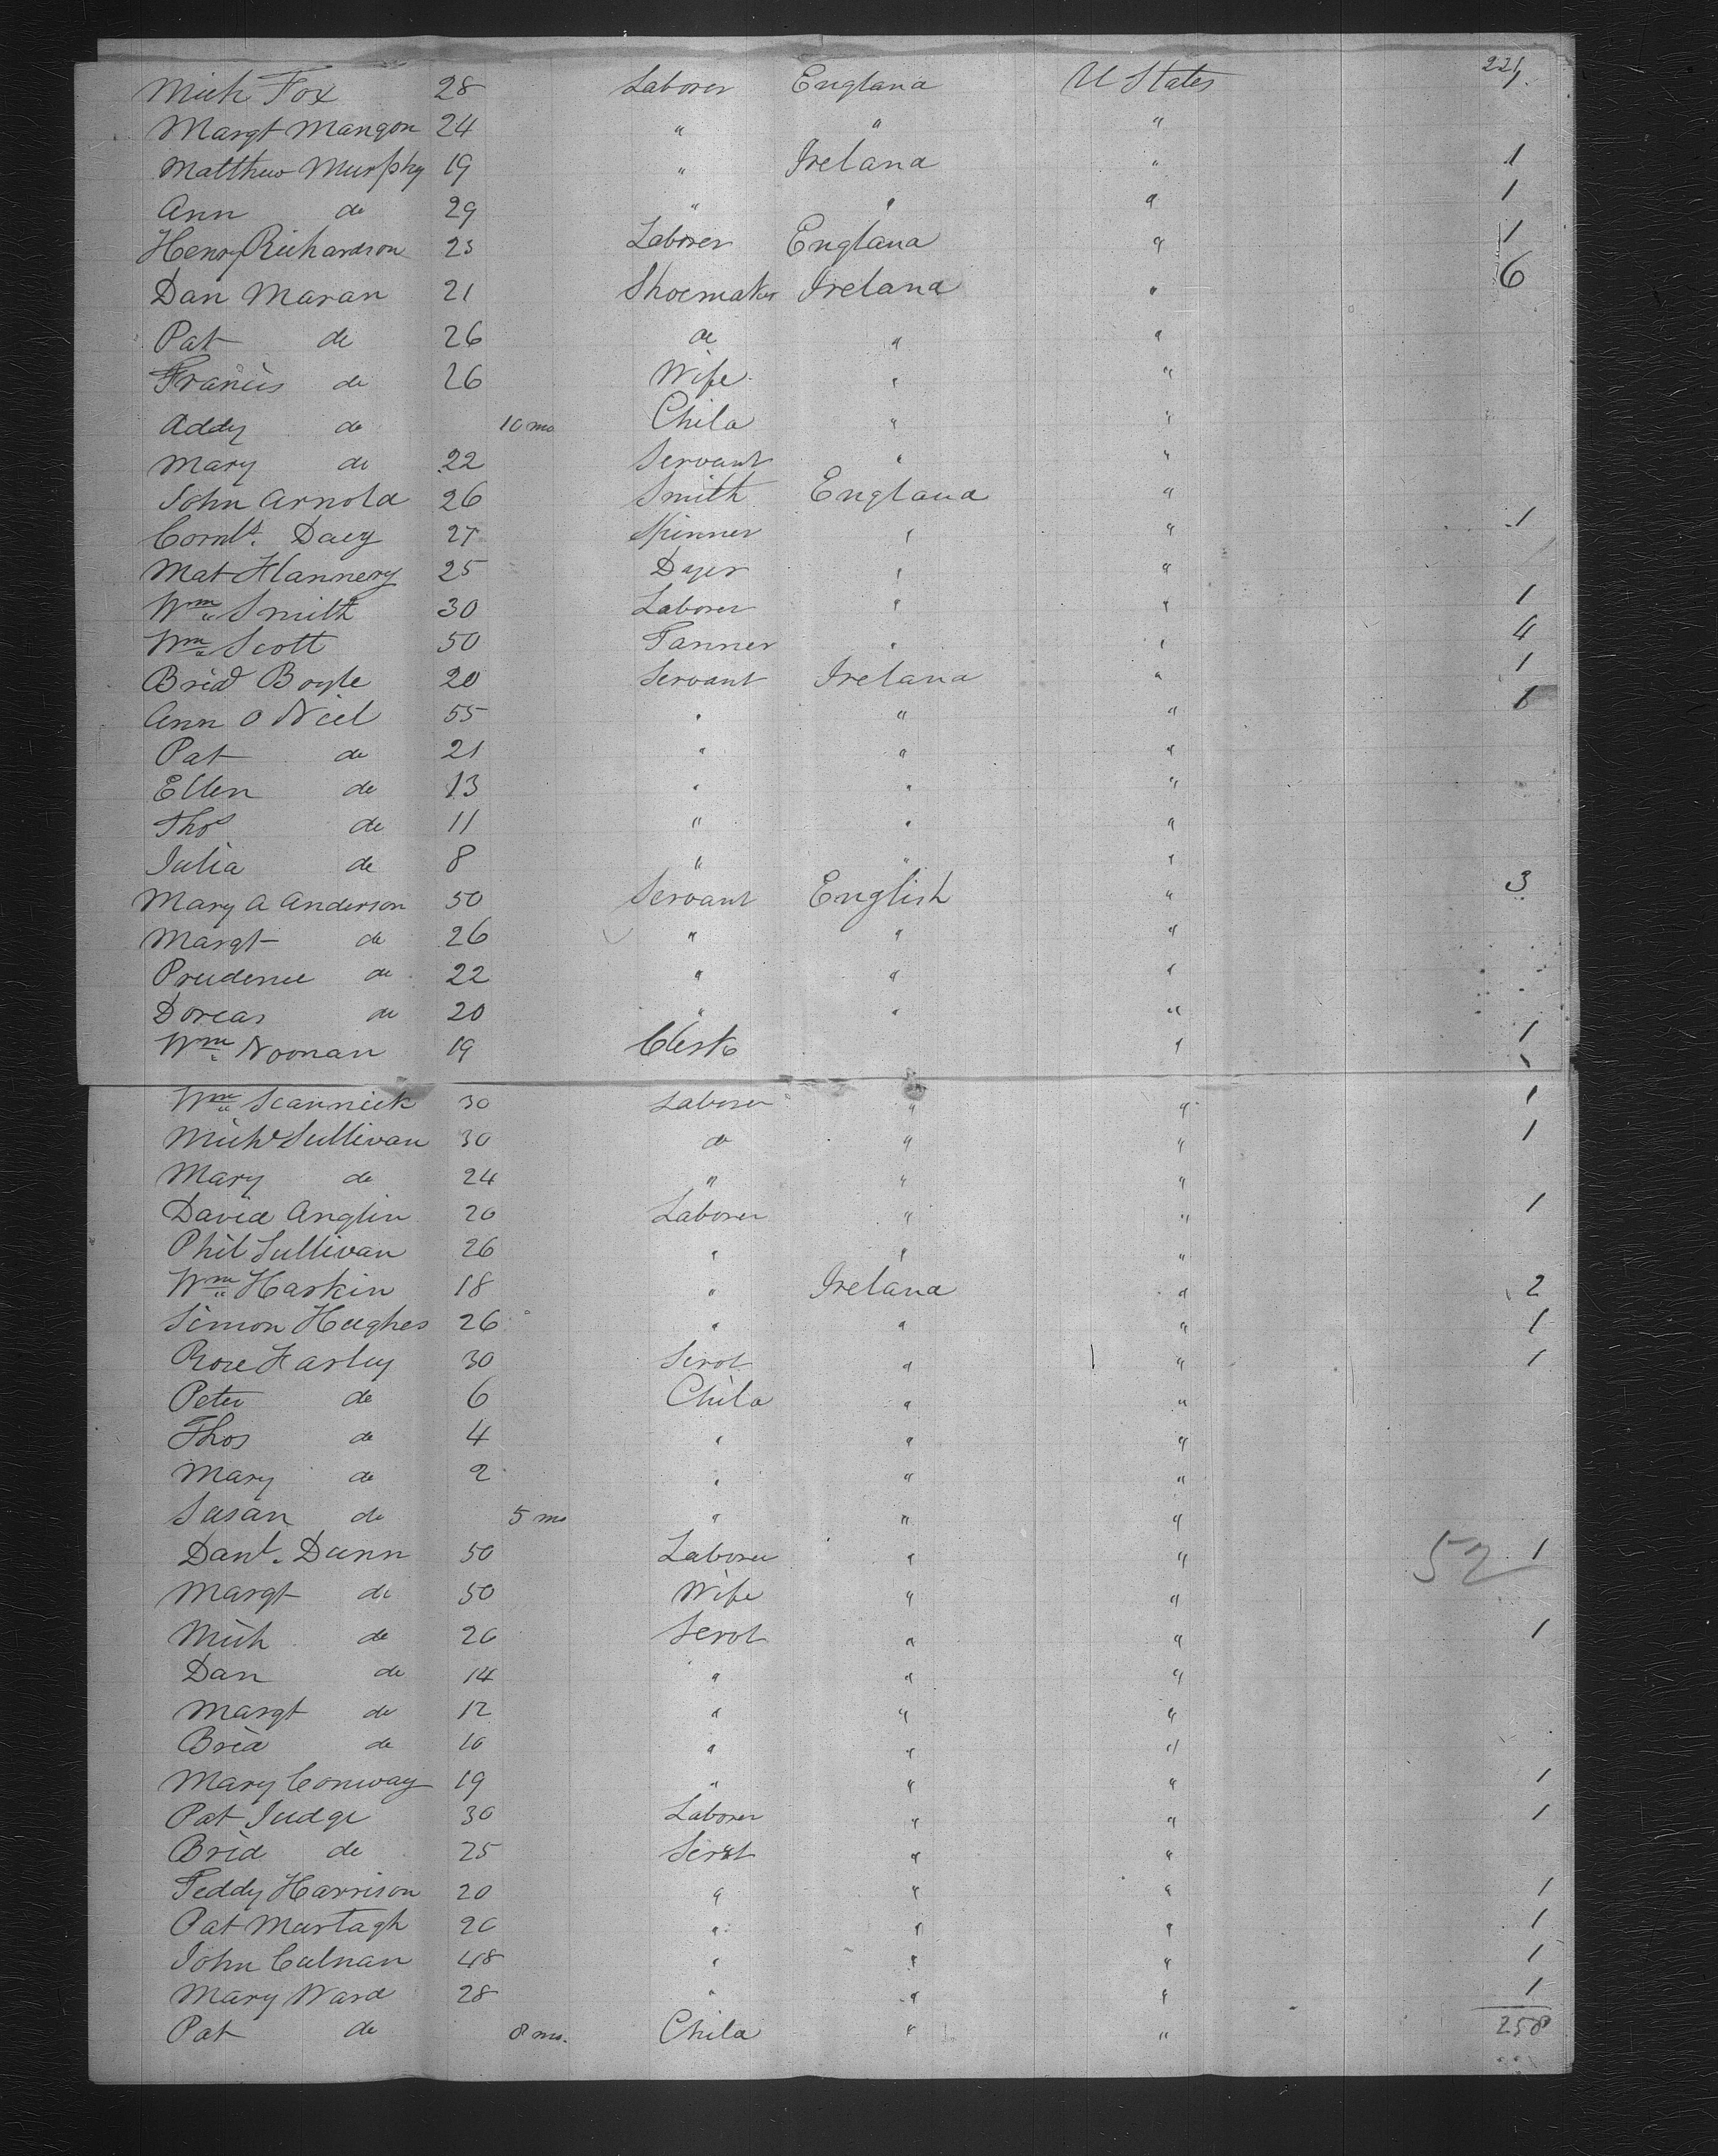 221
Mich Fox 28 Laborer England U States 1
Margt Mangon 24 " " "
Matthew Murphy 19 " Ireland " 1
Ann do 29 " " " 1
Henry Richardson 23 Laborer England " 1
Dan Maran 21 Shoemaker Ireland " 6
Pat do 26 do " "
Francis do 26 Wife " "
Addy do 10 mo Child " "
Mary do 22 Servant " "
John Arnold 26 Smith England "
Cornls. Dacy 27 Spinner " " 1
Mat Flannery 25 Dyer " "
Wm Smith 30 Laborer " " 1
Wm Scott 50 Tanner " " 4
Brid Boyle 20 Servant Ireland " 1
Ann O Niel 55 " " "
Pat do 21 " " "
Ellen do 13 " " "
Thos do 11 " " "
Julia do 8 " " "
Mary A Anderson 50 Servant English " 3
Margt do 26 " " "
Prudence do 22 " " "
Dorcas do 20 " " "
Wm Noonan 19 Clerk " 1
Wm Scannick 30 Laborer " " 1
Michl Sullivan 30 do " " 1
Mary do 24 " " "
David Anglin 20 Laborer " " 1
Phil Sullivan 26 " " "
Wm Harkin 18 " Ireland " 2
Simon Hughes 26 " " " 1
Rose Farley 30 Servt " " 1
Peter do 6 Child " "
Thos do 4 " " "
Mary do 2 " " "
Susan do 5 mo " " "
Danl. Dunn 50 Laborer " " 52 1
Margt do 50 Wife " "
Mich do 20 Servt " " 1
Dan do 14 " " "
Margt do 12 " " "
Brid do 10 " " "
Mary Conway 19 " " " 1
Pat Judge 30 Laborer " " 1
Brid do 25 Servt " "
Teddy Harrison 20 " " " 1
Pat Murtagh 20 " " " 1
John Culnan 48 " " " 1
Mary Ward 28 " " " 1
Pat do 8 mo. Child " " 258